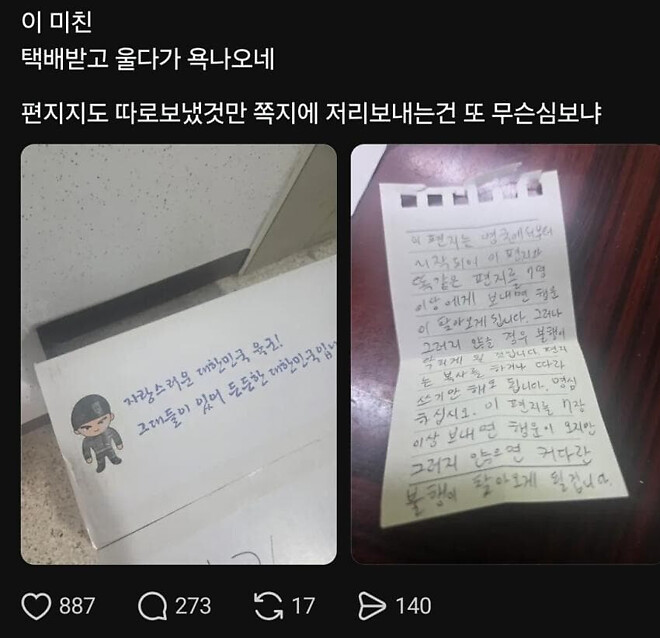 이 미친
택배받고 울다가 욕나오네
편지지도 따로보냈것만 쪽지에 저리보내는건 또 무슨심보냐
자랑스러운 대한민국 육군!
그대들이 있어 든든한 대한민국입니
이 편지는 영국에서부터
시작되어 이 편지와
똑같은 편지를 7명
이상에게 보내면 행운
이 찾아오게 됩니다. 그러나
그러지 않을 경우 불행이
찾아오게 될 것입니다 편지
는 복사를 하거나 따라
쓰기만 해도 됩니다. 명심
하십시오. 이 편지를 7장
이상 보내면 행운이 오지만
그러지 않으면 커다란
불행이 찾아오게 될겁니다.
887
273
17
140